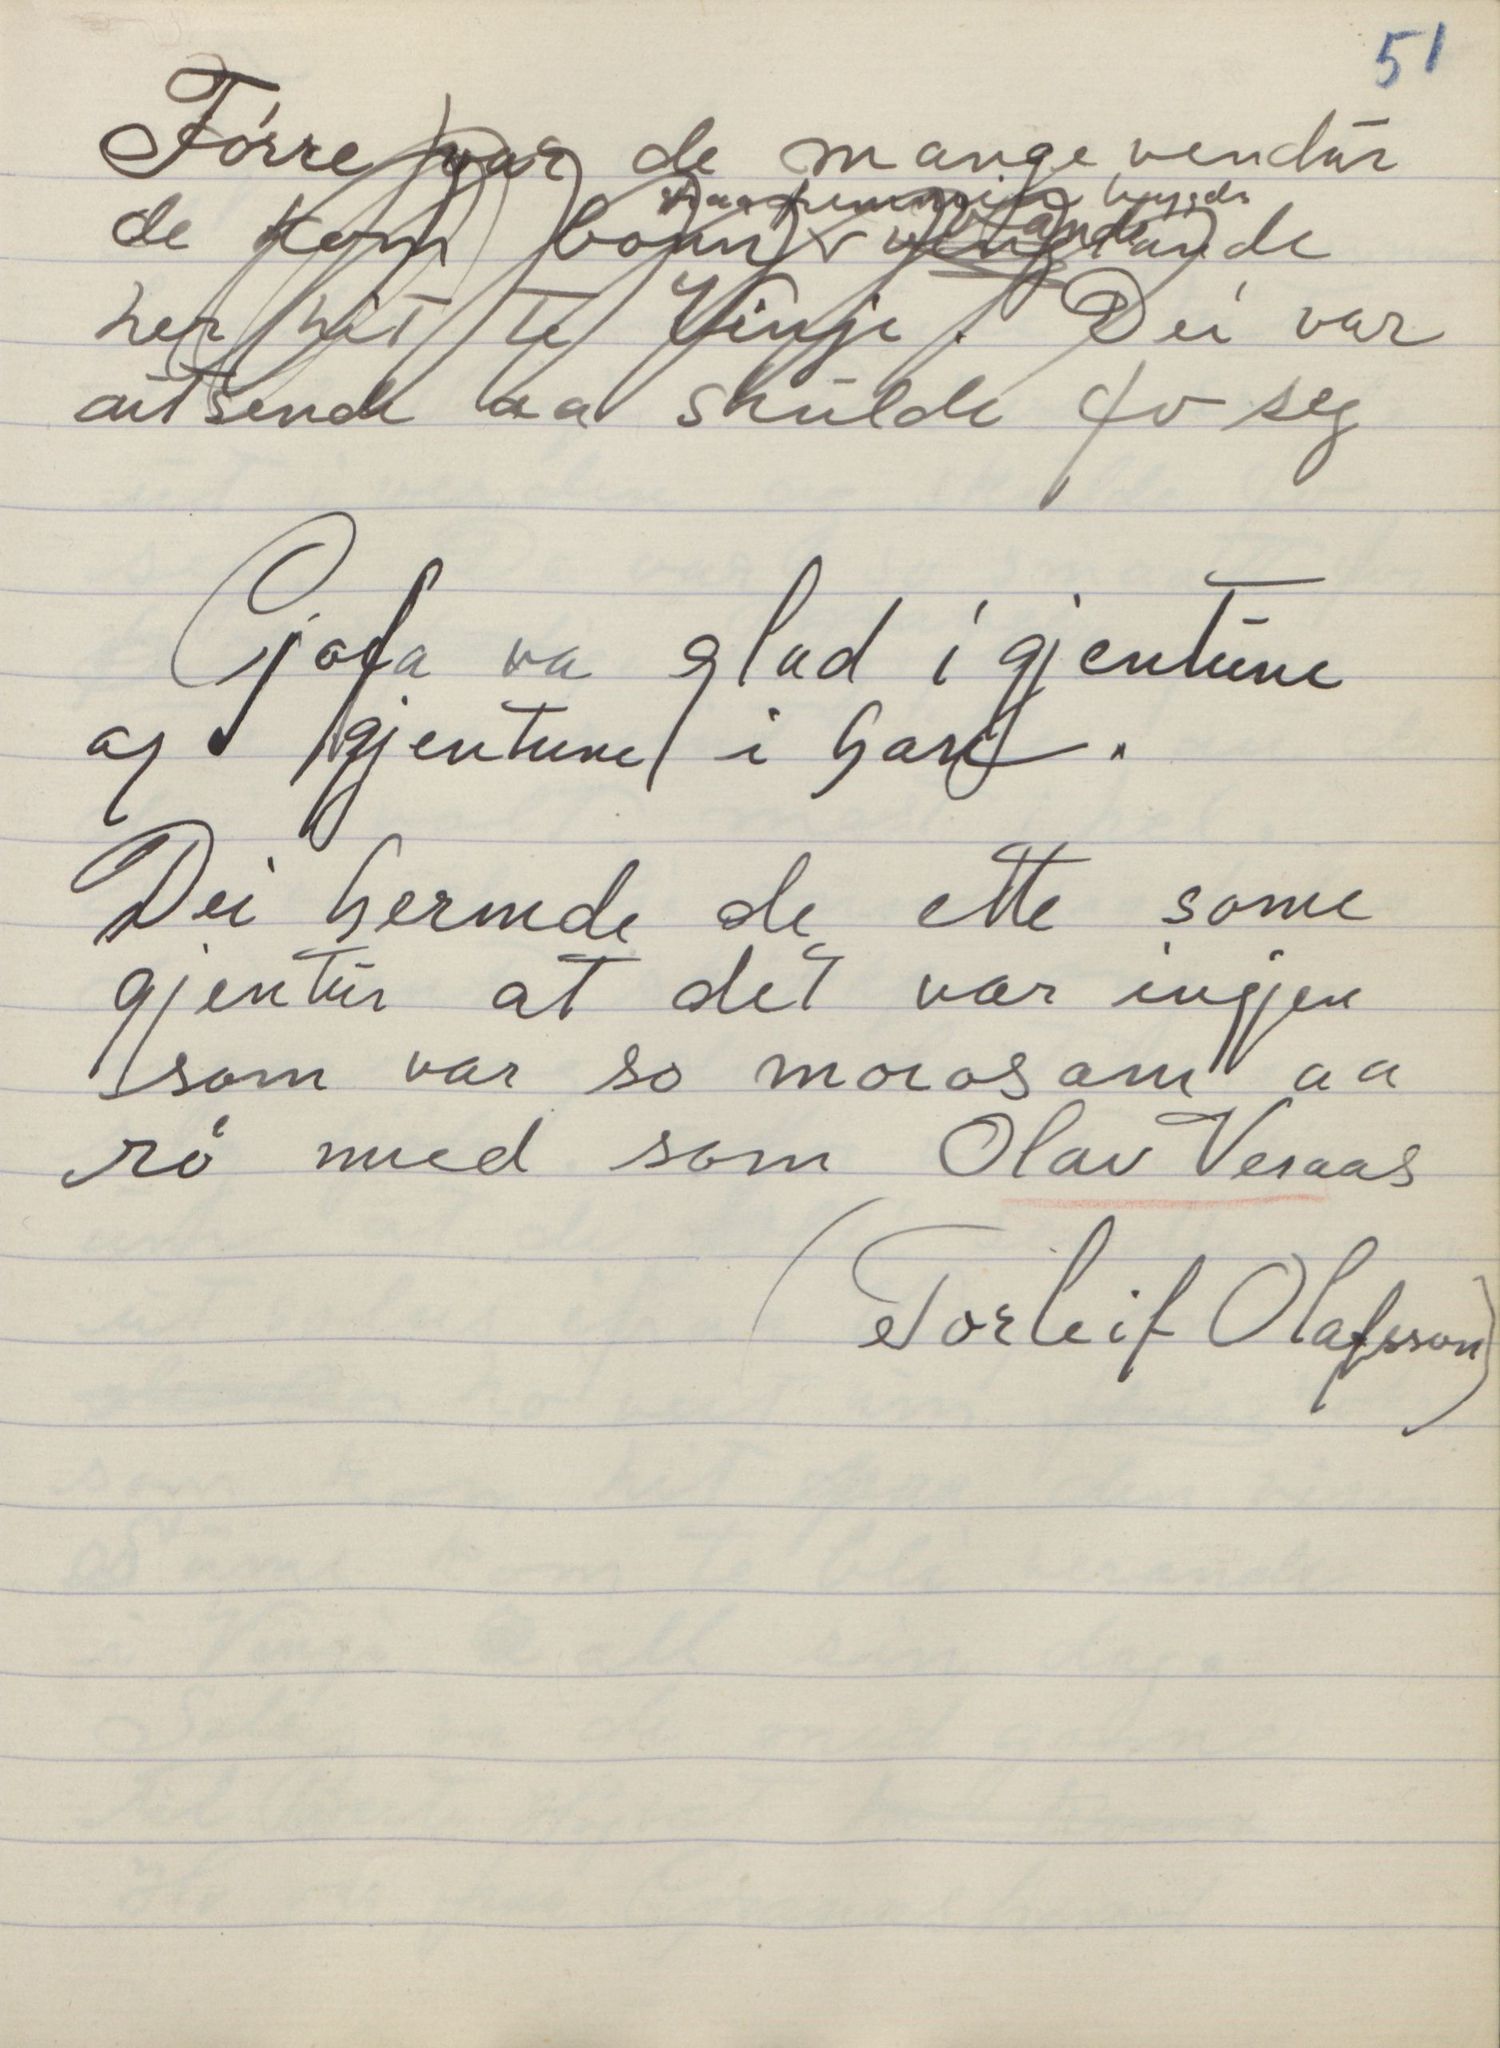 51
Förre var de mange vendūr
bygde
de kom baan
her hit te Vinje. Dei var
utsende aa skūlde fo seg
Gjofa va glad i gjentūne
og gjentune i han.
Dei hermde de ette some
gjentūr at det var ingjen
som var so morosam aa
ro med som Olav Vesaas
(Torleif Olafsson)